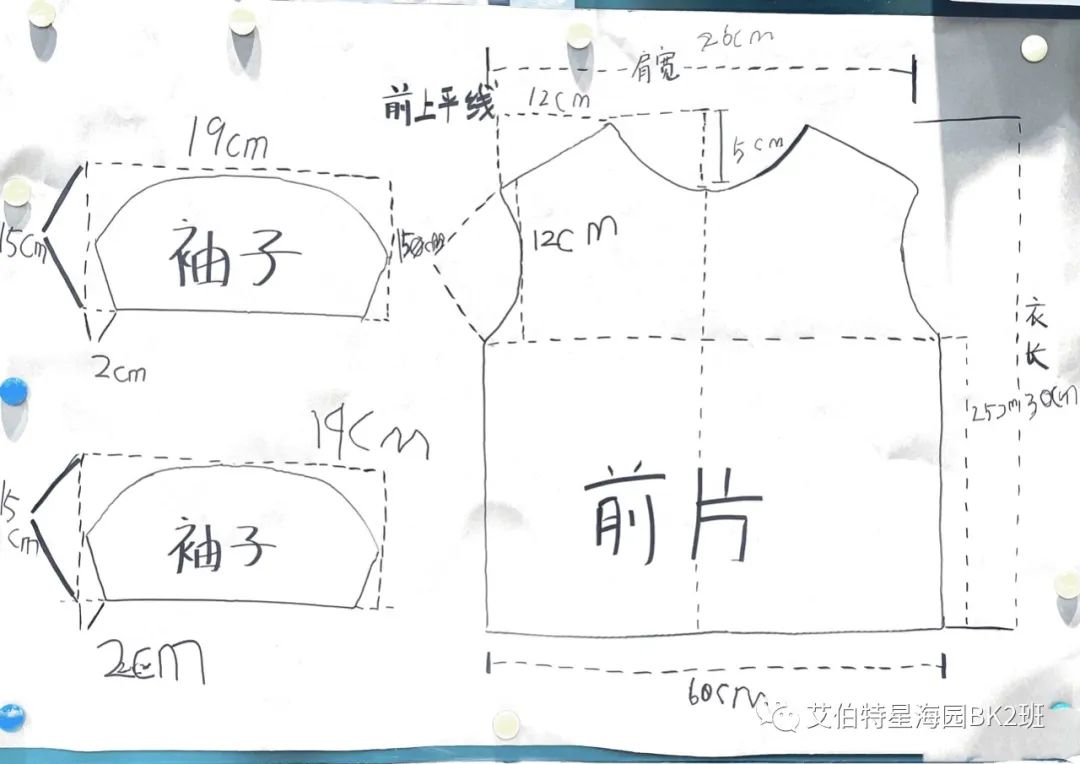 26cm
肩宽
前上平线
12cm
5cm
19cm
15cm
袖子
2cm
12cm
衣长
30cm
19cm
15cm
袖子
2cm
前片
60cm
艾伯特星海园BK2班